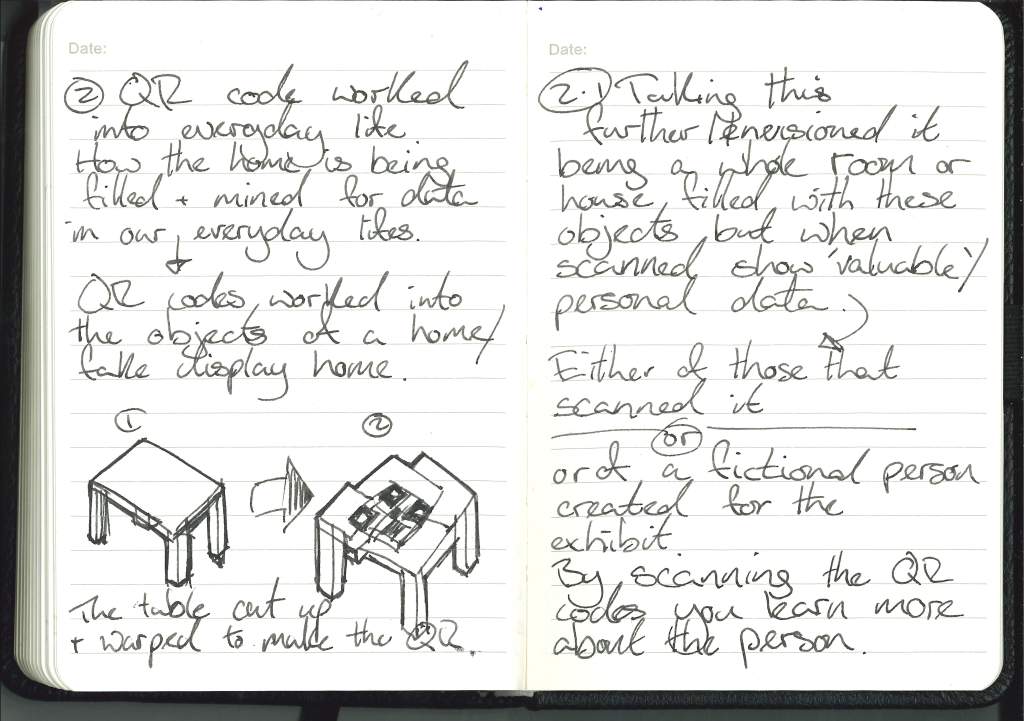 Date:
② QR code worked
into everyday life.
How the home is being
filled + mined for data
in our everyday lifes.
QR codes worked into
the objects of a home/
fake display home.
①
②
The table cut up
+ warped to make the QR.
Date:
2.1 Taking this
further I envisioned it
being a whole room or
house filled with these
objects but when
scanned show 'valuable'/
personal data.
Either of those that
scanned it
or
or of a fictional person
created for the
exhibit.
By scanning the QR
codes you learn more
about the person.